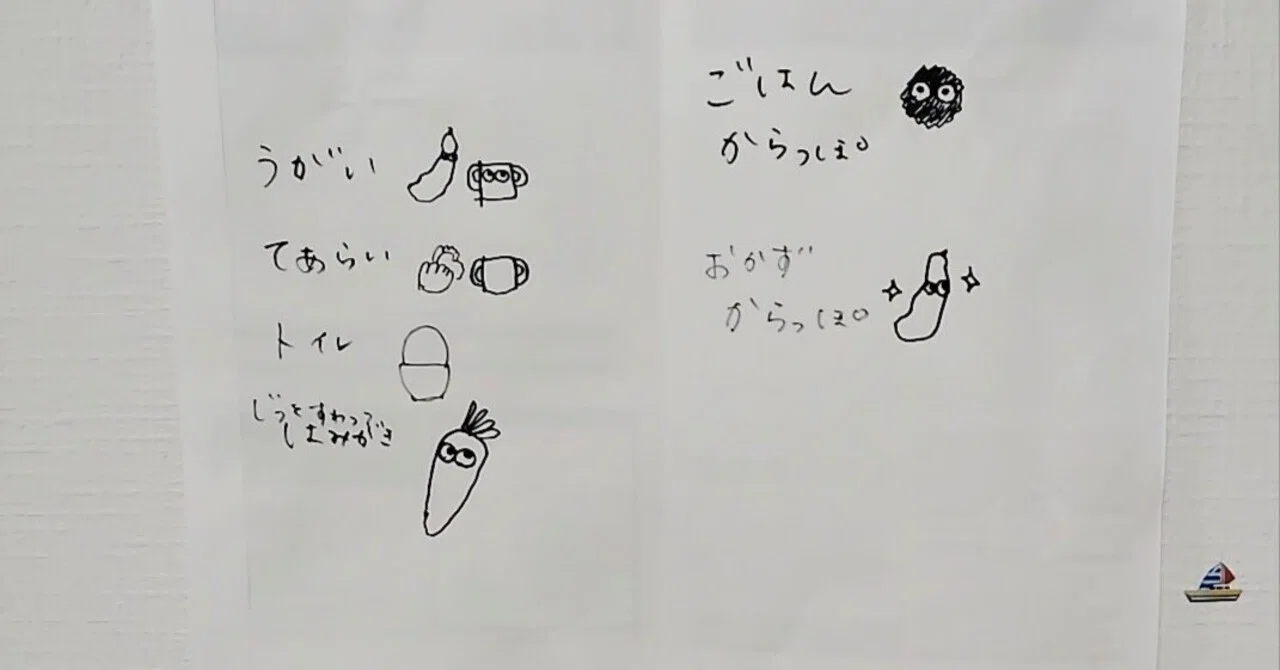 うがい
てあらい
トイレ
じっとすわって
しはみがき
ごはん
からっぽ
おかず
からっぽ